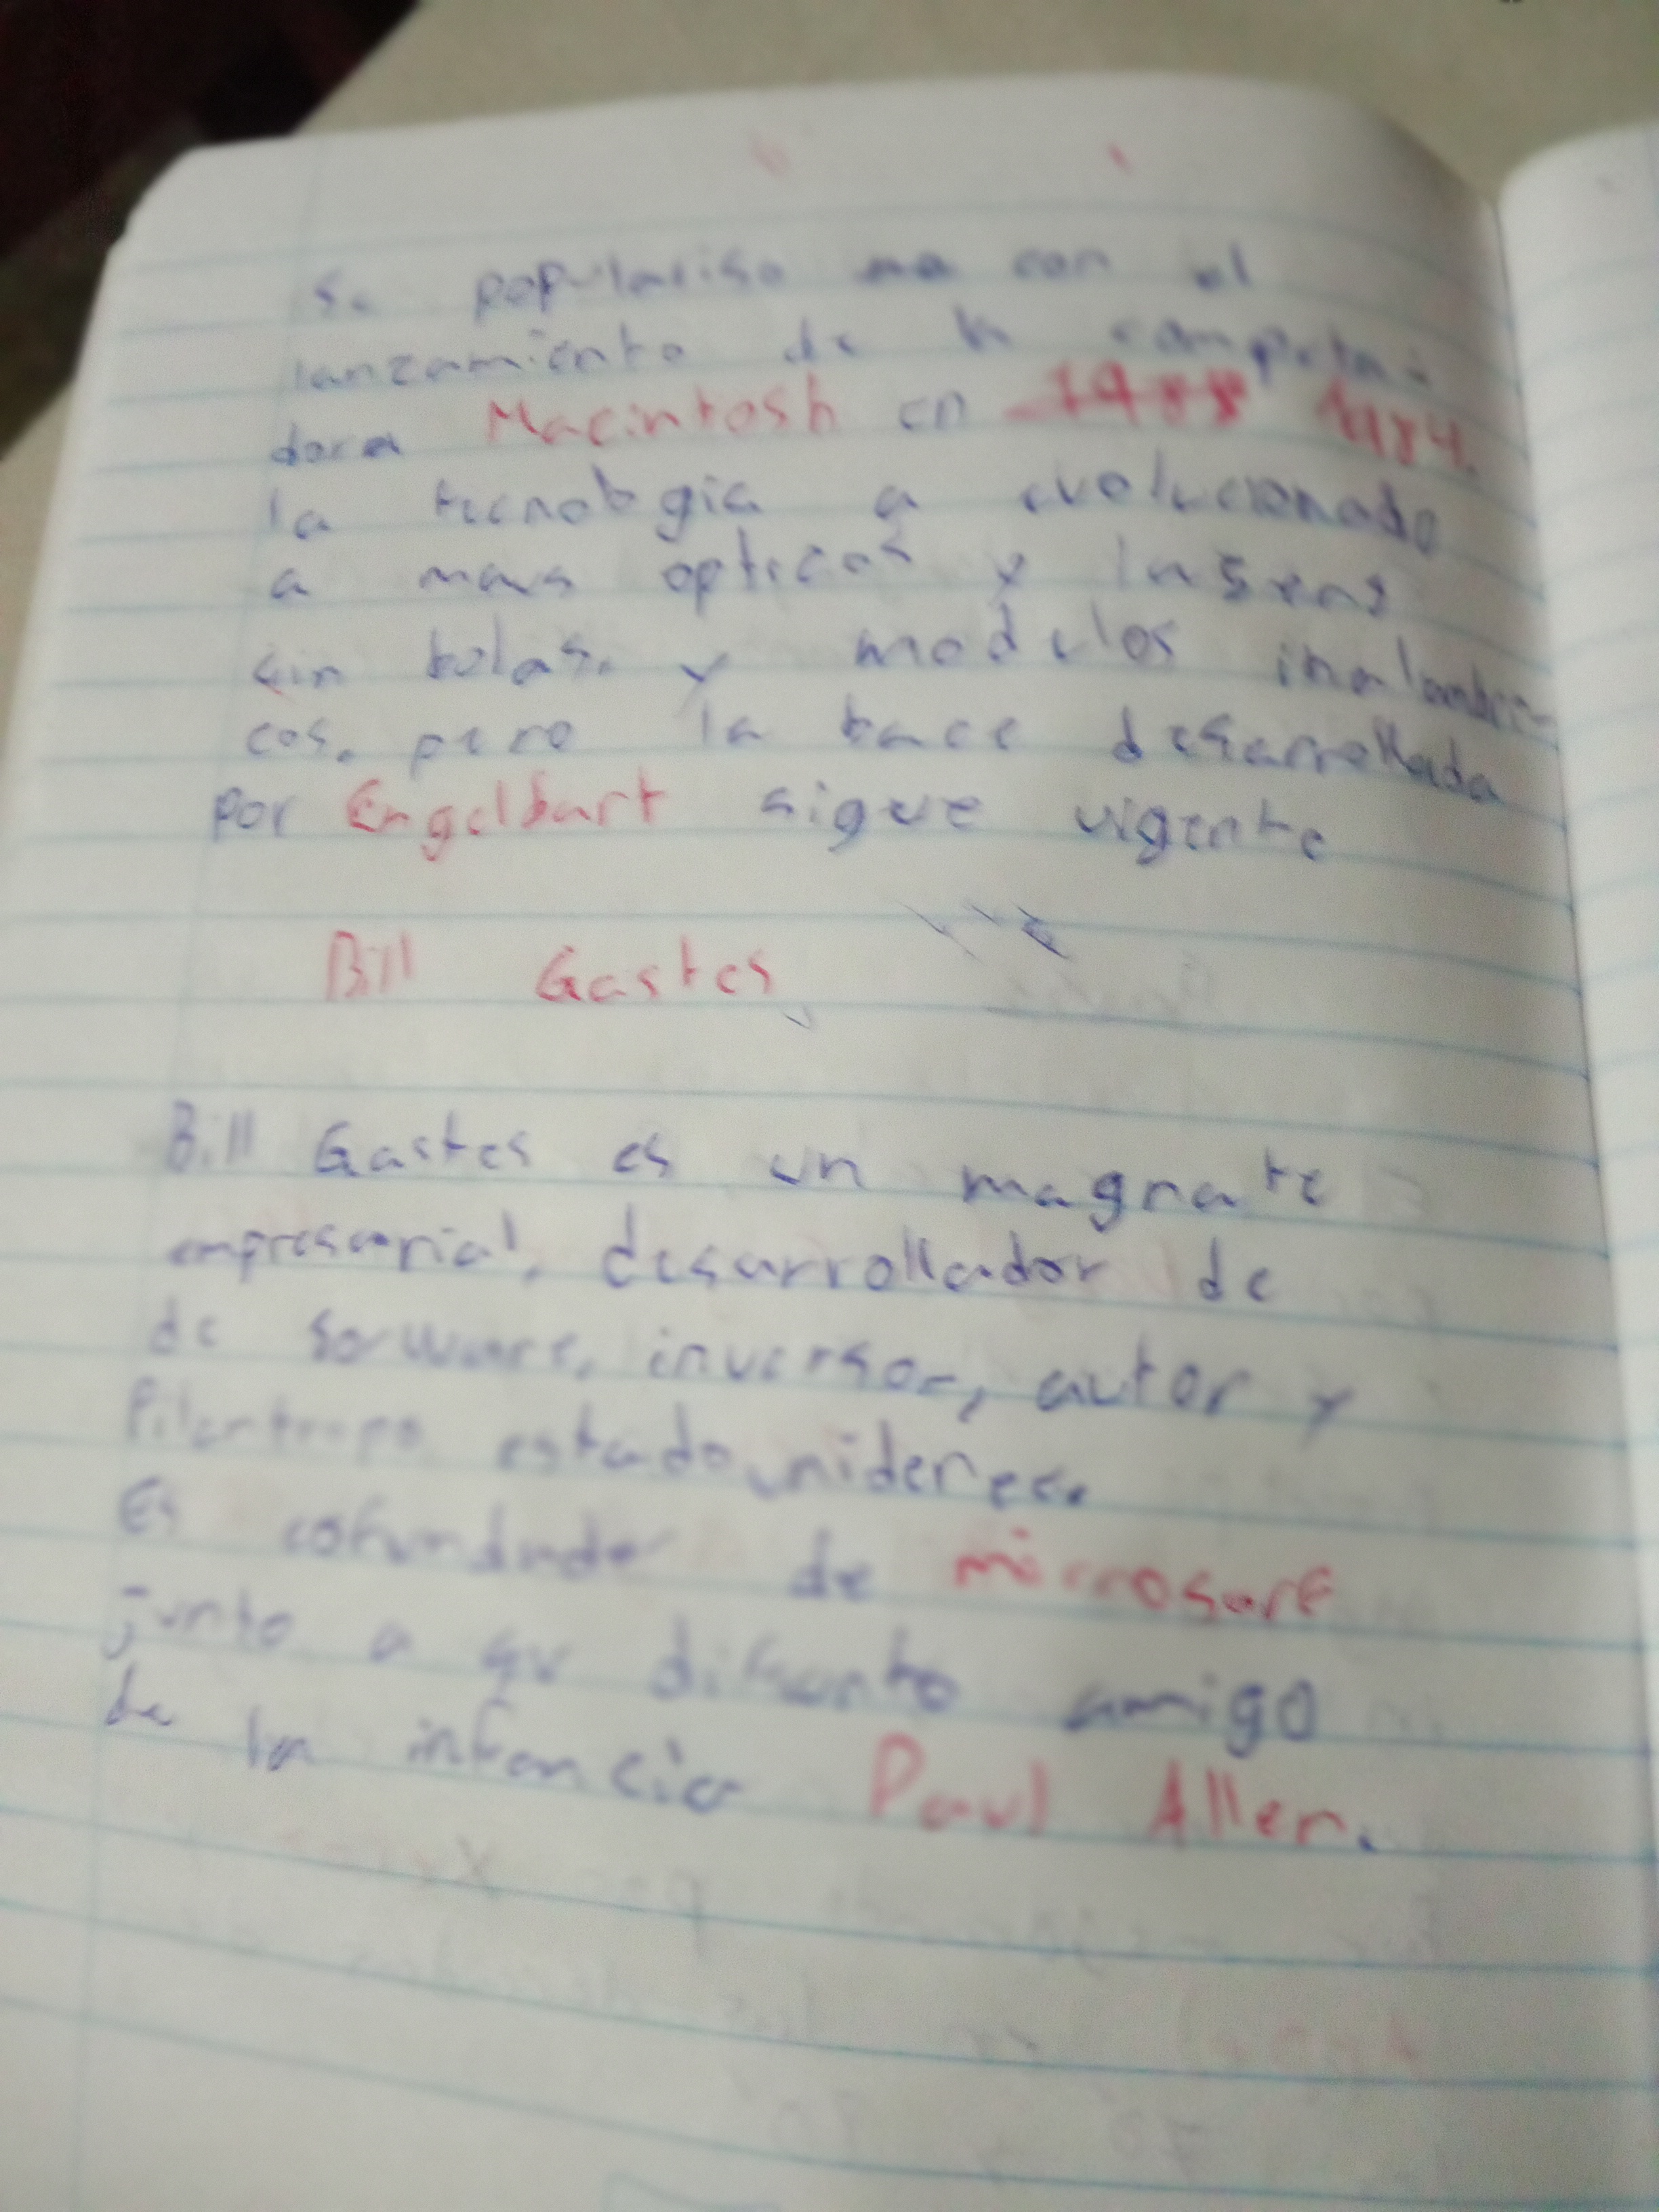 se populariso con el
lanzamiento de la computa-
dora Macintosh en 1984.
la tecnologia a evolucionado
a maus opticos y
sin bolas. y modulos inalambri-
cos. pero la bace desarrollada
por Engelbart sigue vigente
Bill Gastes
Bill Gastes es un magnate
empresarial, desarrollador de
de sorware, inversor, autor y
Filantropo estadounidences.
Es cofundador de microsorf
junto a su difunto amigo
de la infancia Paul Allen.